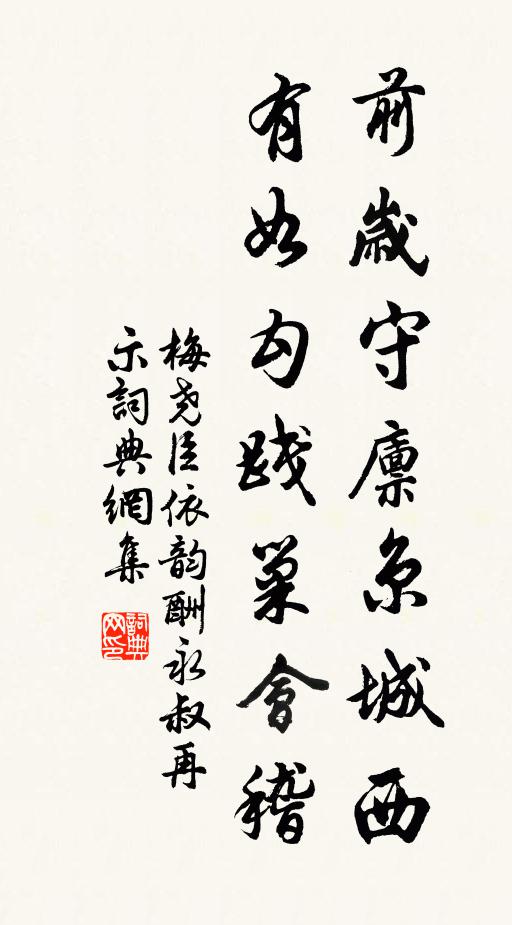 前歲守廪京城西
有如勾践巢會稽
梅尧臣依韵酬永叔再
示詞典網集
詞典网印